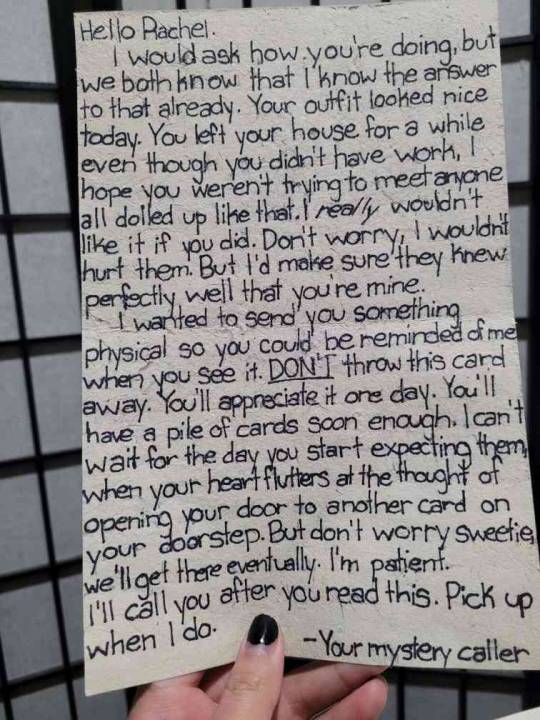 Hello Rachel.
I would ask how you're doing, but
we both know that I know the answer
to that already. Your outfit looked nice
today. You left your house for a while
even though you didn't have work, I
hope you weren't trying to meet anyone
all dolled up like that. I really wouldn't
like it if you did. Don't worry, I wouldn't
hurt them. But I'd make sure they knew
perfectly well that you're mine.
I wanted to send you something
physical so you could be reminded of me
when you see it. DON'T throw this card
away. You'll appreciate it one day. You'll
have a pile of cards soon enough. I can't
wait for the day you start expecting them,
when your heart flutters at the thought of
opening your door to another card on
your doorstep. But don't worry sweetie,
we'll get there eventually. I'm patient.
I'll call you after you read this. Pick up
when I do.
-Your mystery caller